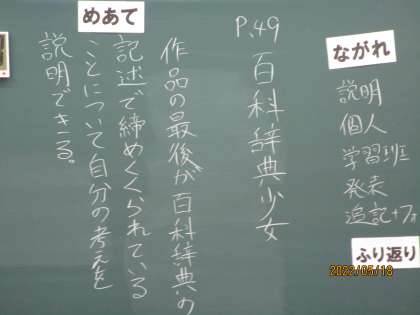 ながれ
説明
個人
学習班
発表
追記+フォ
ふり返り
P.49
百科辞典少女
めあて
作品の最後が百科辞典の
記述で締めくくられている
ことについて自分の考えを
説明できる。
2022/05/18